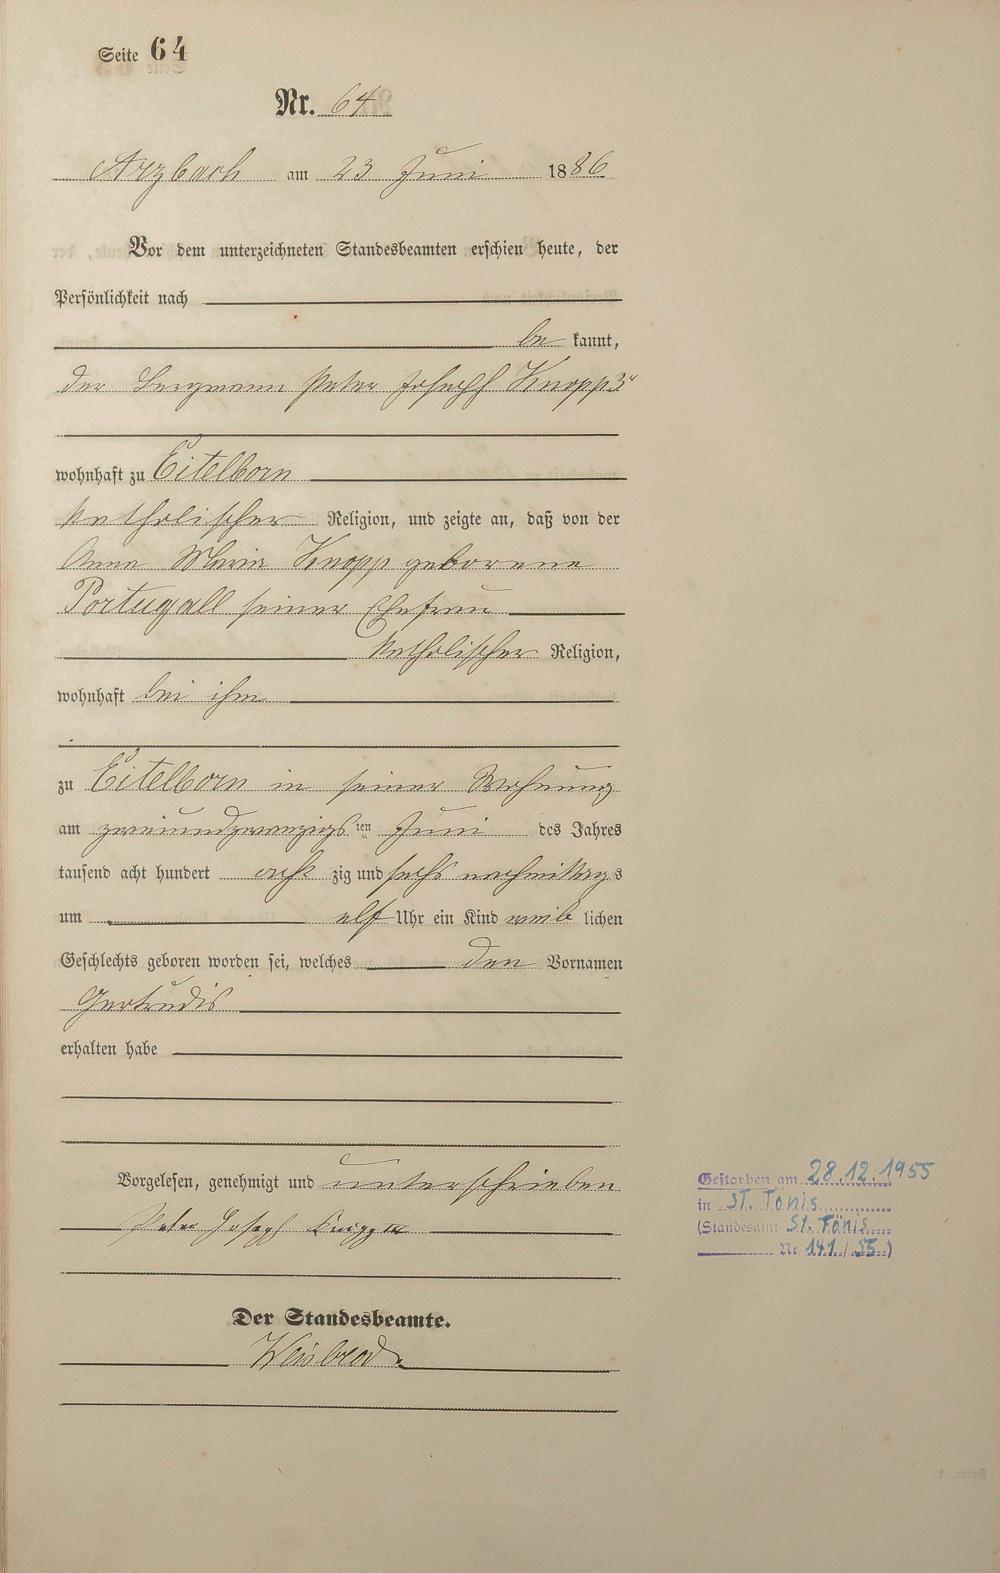 Seite 64
Nr. 64
Arzbach am 23 Juni 1886
Vor dem unterzeichneten Standesbeamten erschien heute, der
Persönlichkeit nach
be kannt,
der Bergmann Peter Joseph Knopp 3r
wohnhaft zu Eitelborn
katholischer Religion, und zeigte an, daß von der
Anna Maria Knopp geborene
Portugall seiner Ehefrau
katholischer Religion,
wohnhaft bei ihm
zu Eitelborn in seiner Wohnung
am zweiundzwanzigsten Juni des Jahres
tausend acht hundert acht zig und sechs nachmittags
um elf Uhr ein Kind weib lichen
Geschlechts geboren worden sei, welches den Vornamen
Gertrudis
erhalten habe
Vorgelesen, genehmigt und unterschrieben
Peter Joseph Knopp III
Der Standesbeamte.
Weisbrod
Gestorben am 28.12.1955
in St. Tönis
(Standesamt St. Tönis
Nr 141/55)